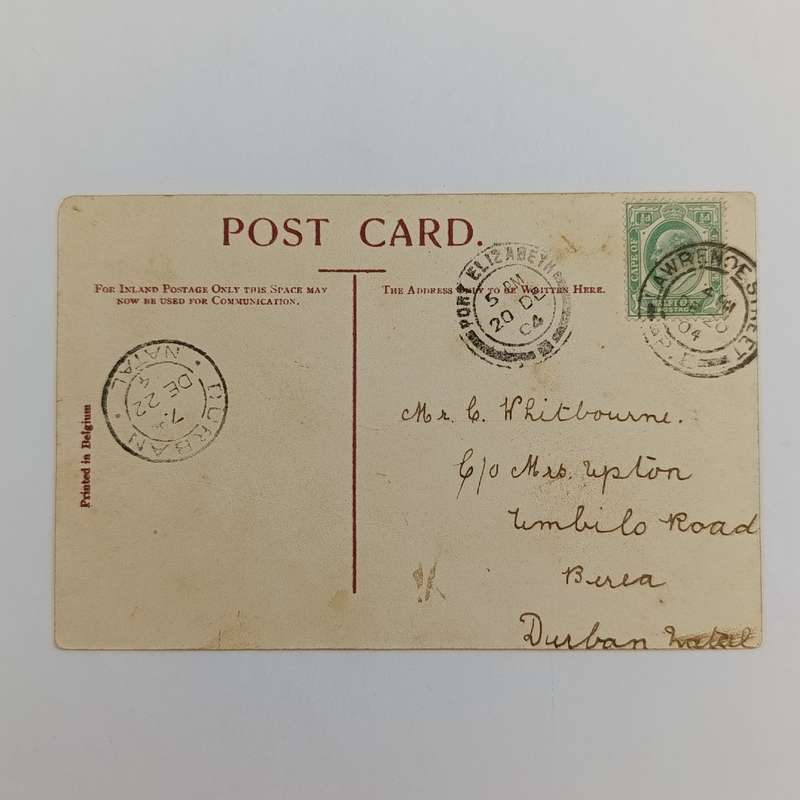 POST CARD.
FOR INLAND POSTAGE ONLY THIS SPACE MAY
NOW BE USED FOR COMMUNICATION.
THE ADDRESS ONLY TO BE WRITTEN HERE.
Printed in Belgium
DURBAN · NATAL ·
7.
DE 22
4
PORT ELIZABETH
5 PM
20 DE
04
½d ½d
CAPE OF
POSTAGE
LAWRENCE STREET
20
04
Mr. C. Whitbourne.
C/o Mrs. Upton
Umbilo Road
Berea
Durban Natal